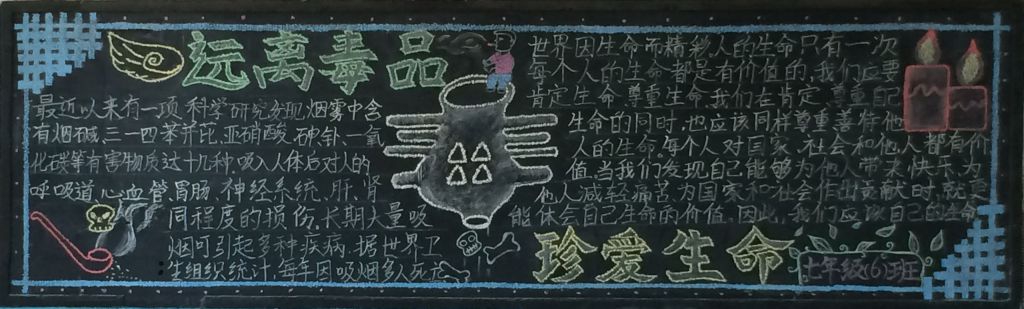 远离毒品
最近以来有一项科学研究发现烟雾中含
有烟碱、三一四苯并比、亚硝酸、砷、钋、一氧
化碳等有害物质达十几种,吸入人体后对人的
呼吸道、心血管、胃肠、神经系统、肝、肾
同程度的损伤,长期大量吸
烟可引起多种疾病,据世界卫
生组织统计,每年因吸烟多人死亡
世界因生命而精彩人的生命只有一次
每个人的生命都是有价值的,我们应要
肯定生命,尊重生命,我们在肯定、尊重自己
生命的同时,也应该同样尊重善待他
人的生命,每个人对国家、社会和他人都有价
值,当我们发现自己能够为他人带来快乐,为
他人减轻痛苦,为国家和社会作出贡献时,就更
能体会自己生命的价值,因此,我们应该自己的生命
珍爱生命
七年级(6)班